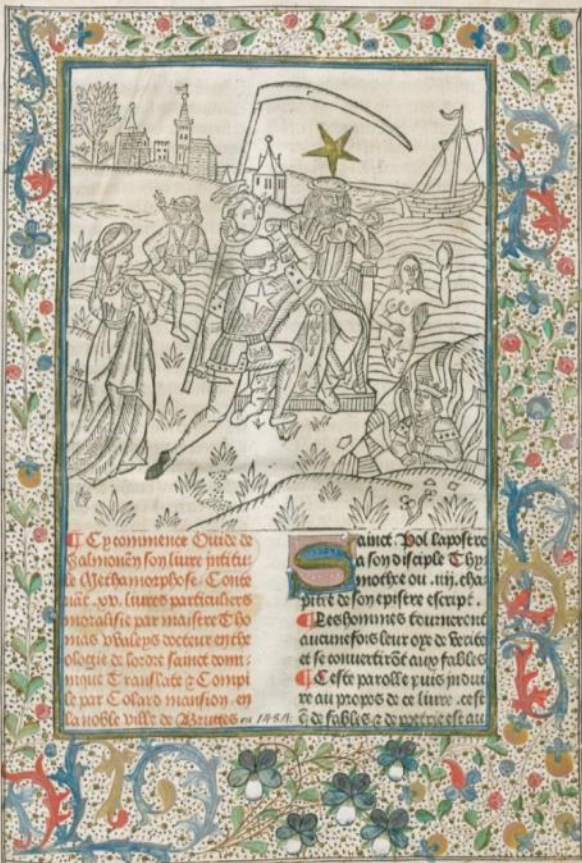 Cy commence Ouide de
Salmonēn son liure jntitu-
le Methamorphose. Conte
nāt .xv. liures particuliers
moralisie par maistre Tho
mas vvaleys docteur en the
ologie de lordre sainct domi-
nique Translate & Compi
le par Colard mansion. en
la noble ville de Bruges en 1484.
Sainct Pol lapostre
a son disciple Thy-
mothee ou .iiij. cha
pitre de son epistre escript.
Les hommes tourneront
aucunefois leur oye de verite
et se convertirōt aux fables
Ceste parolle puis jndui
re au propos de ce liure. cest
de fables & de poetrie est au